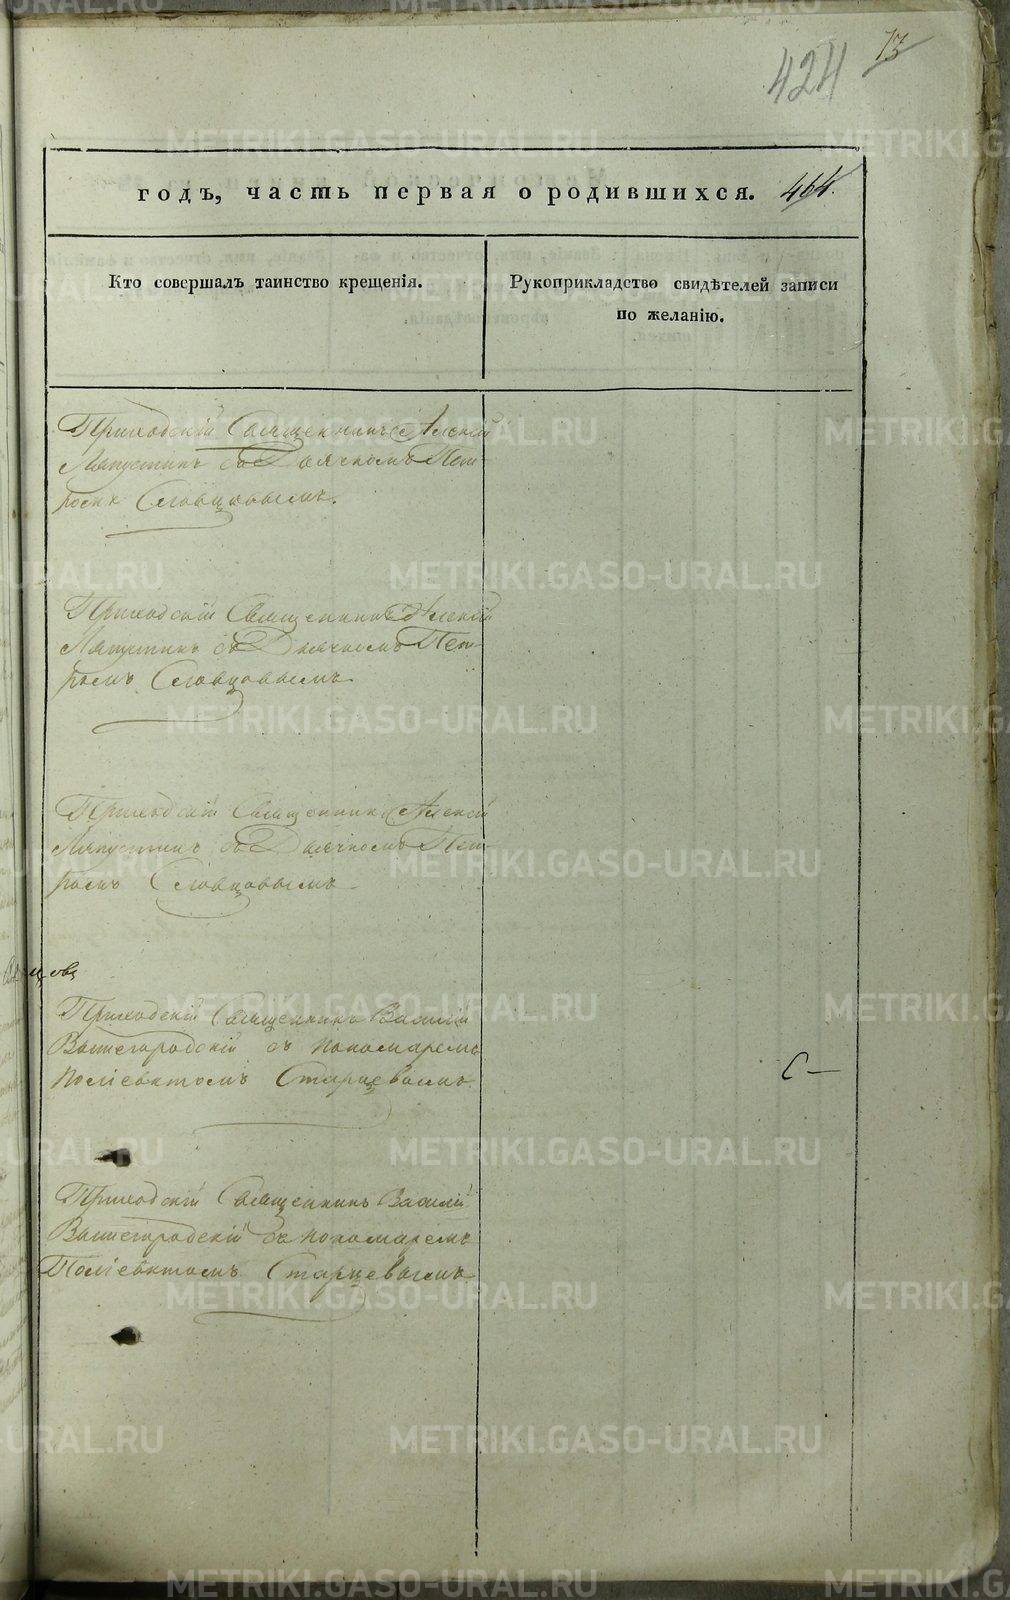 73
424
годъ, часть первая о родившихся. 464.
Кто совершалъ таинство крещенія.
Рукоприкладство свидѣтелей записи
по желанію.
Приходскій Священникъ Алексій
Ляпустинъ съ Дьячкомъ Пет-
ромъ Словцовымъ.
Приходскій Священникъ Алексій
Ляпустинъ съ Дьячкомъ Пет-
ромъ Словцовымъ.
Приходскій Священникъ Алексій
Ляпустинъ съ Дьячкомъ Пет-
ромъ Словцовымъ
Приходскій Священникъ Василій
Вышегородскій съ пономаремъ
Поліевктомъ Старцевымъ.
С
Приходскій Священникъ Василій
Вышегородскій съ пономаремъ
Поліевктомъ Старцевымъ
METRIKI.GASO-URAL.RU